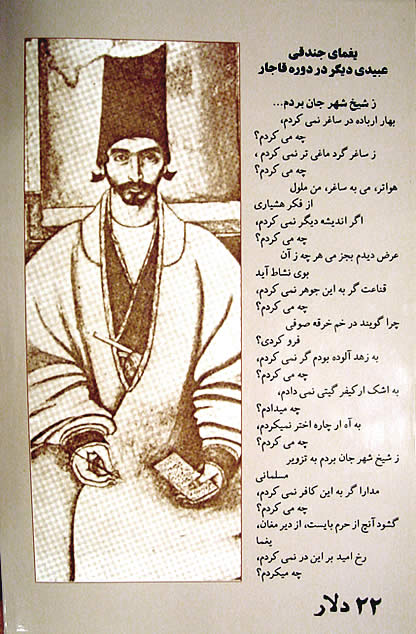 یغمای جندقی
عبیدی دیگر در دوره قاجار
ز شیخ شهر جان بردم...
بهار ارباده در ساغر نمی کردم،
چه می کردم؟
ز ساغر گرد ماغی تر نمی کردم ،
چه می کردم؟
هواتر، می به ساغر، من ملول
از فکر هشیاری
اگر اندیشه دیگر نمی کردم،
چه می کردم؟
عرض دیدم بجز می هر چه ز آن
بوی نشاط آید
قناعت گر به این جوهر نمی کردم،
چه می کردم؟
چرا گویند در خم خرقه صوفی
فرو کردی؟
به زهد آلوده بودم گر نمی کردم،
چه می کردم؟
به اشک ارکیفر گیتی نمی دادم،
چه میدادم؟
به آه ار چاره اختر نمیکردم،
چه می کردم؟
ز شیخ شهر جان بردم به تزویر
مسلمانی
مدارا گر به این کافر نمی کردم،
چه می کردم؟
گشود آنچ از حرم بایست، از دیر مغان،
یغما
رخ امید بر این در نمی کردم،
چه میکردم؟
۲۲ دلار